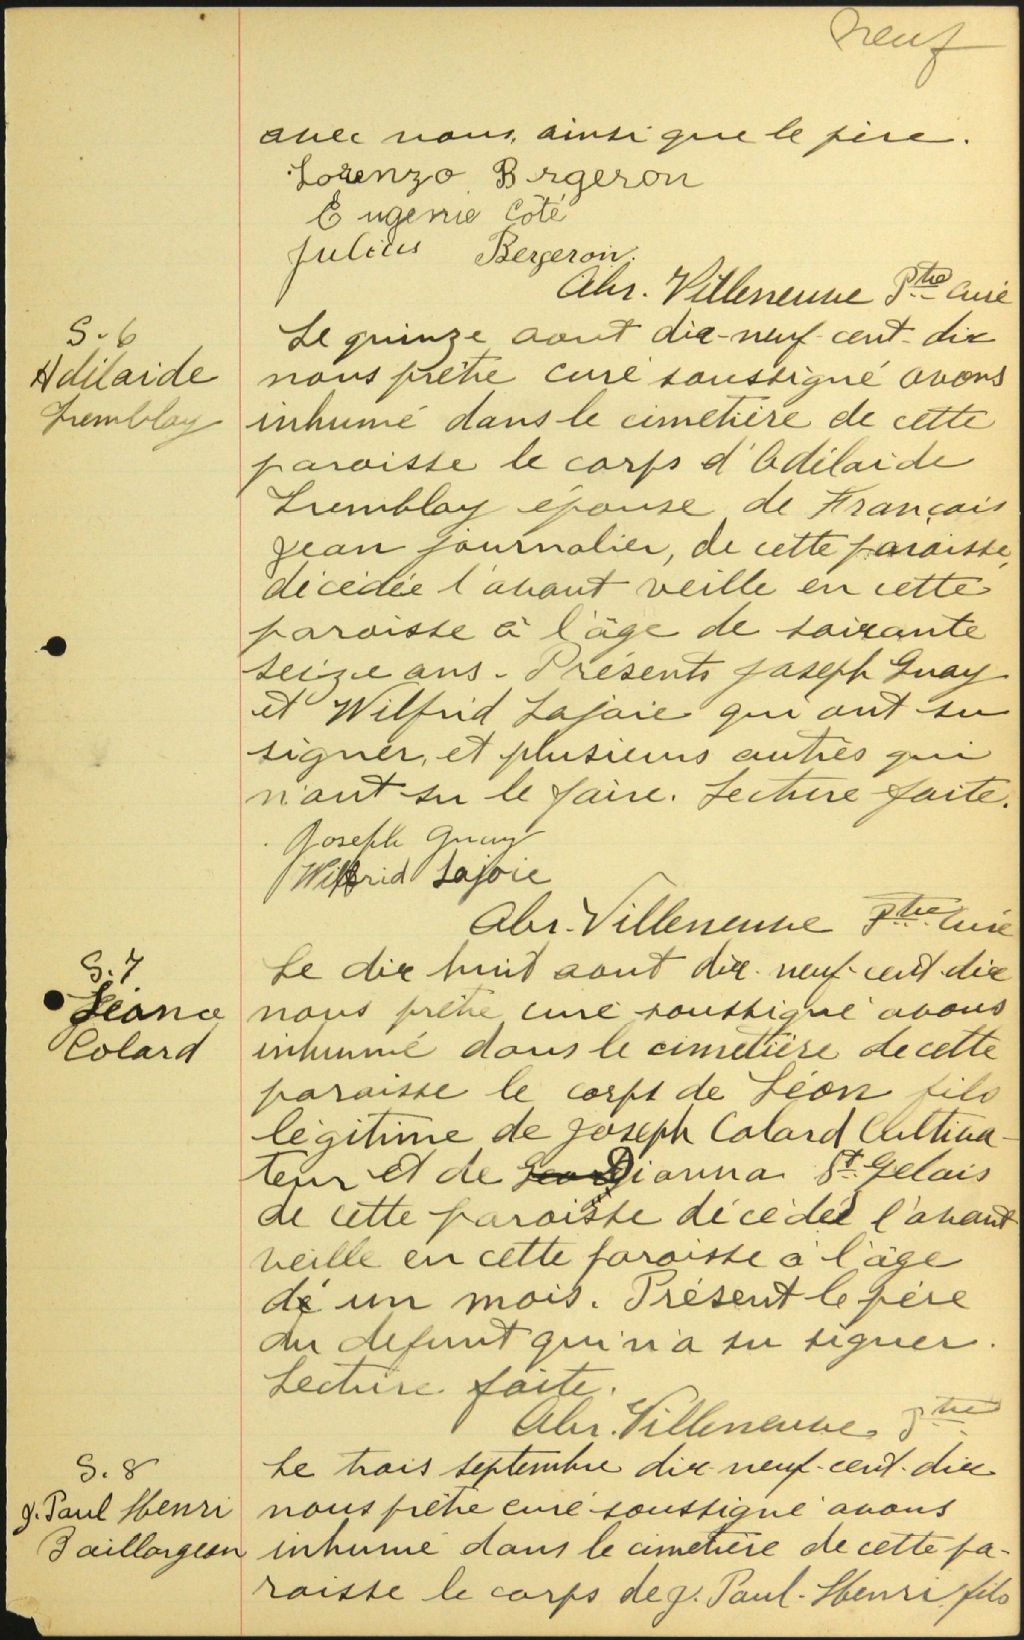 neuf
avec nous, ainsi que le père.
Lorenzo Brgeron
Eugenie Côté
Julius Bergeron.
Abr. Villeneuve Ptre Curé
S. 6
Adélaide
Tremblay
Le quinze aout dix-neuf-cent-dix
nous prêtre curé soussigné avons
inhumé dans le cimetière de cette
paroisse le corps d'Adélaide
Tremblay épouse de François
Jean journalier, de cette paroisse,
décédée l'avant veille en cette
paroisse à l'âge de soixante
seize ans. Présents Joseph Guay
et Wilfrid Lajoie qui ont su
signer, et plusieurs autres qui
n'ont su le faire. Lecture faite.
Joseph Guay
Wilfrid Lajoie
Abr. Villeneuve Ptre Curé
S. 7
Colard
Le dix huit aout dix-neuf-cent-dix
nous prêtre curé soussigné avons
inhumé dans le cimetière de cette
paroisse le corps de Léon fils
légitime de Joseph Colard Cultiva-
teur et de Dianna St. Gelais
de cette paroisse décédé l'avant
veille en cette paroisse à l'âge
de un mois. Présent le père
du defunt qui n'a su signer.
Lecture faite.
Abr. Villeneuve Ptre
S. 8
J. Paul Henri
Baillargeon
Le trois septembre dix-neuf-cent-dix
nous prêtre curé soussigné avons
inhumé dans le cimetière de cette pa-
roisse le corps de J. Paul-Henri fils